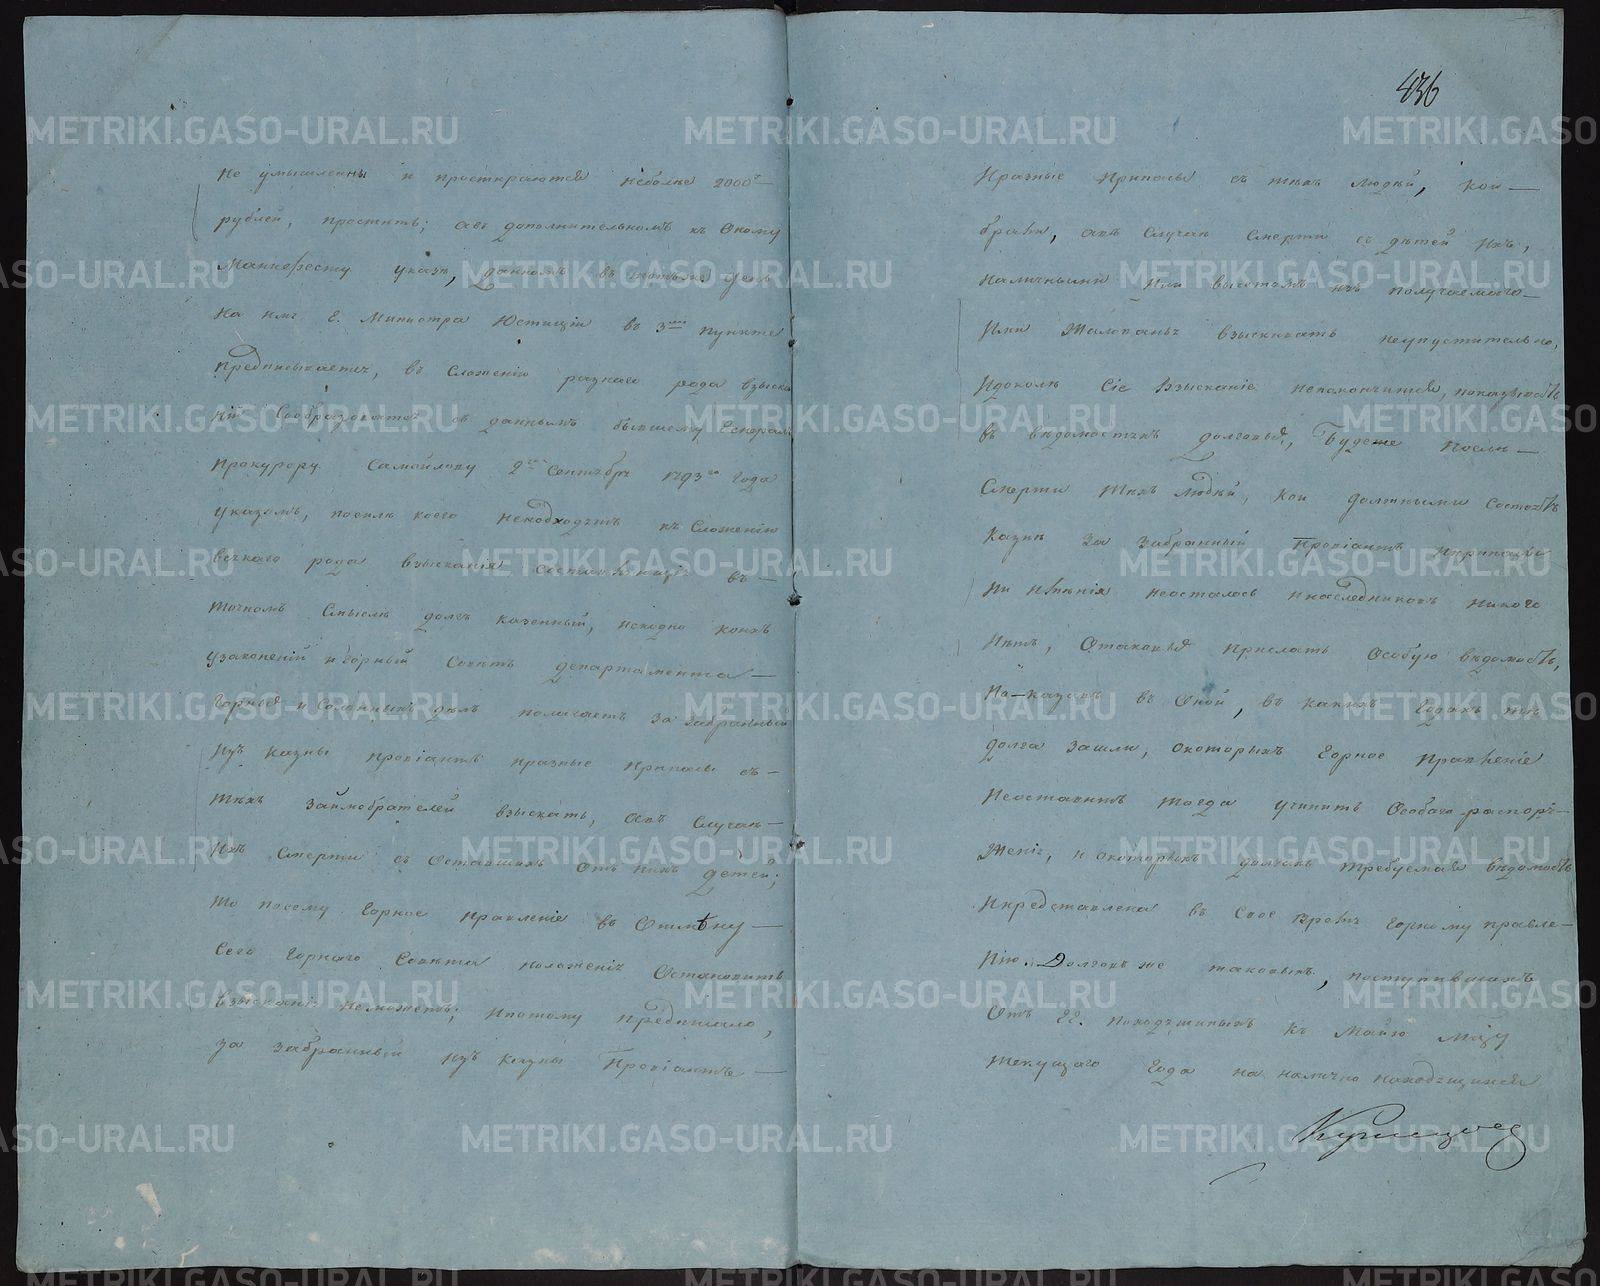 не умышленны и простираются неболѣе 2000
рублей, простить; авъ дополнительномъ къ оному
Манифесту указѣ, данномъ въ тотъже день
на имя Г. Министра Юстиціи въ 3мъ пунктѣ
предписывается, въ сложеніи разнаго рода взыска
ній сообразоватся съ даннымъ бывшему Генералъ
Прокурору Самойлову 2го Сентября 1793го года
указомъ, посилѣ коего неподходятъ къ сложенію
всякаго рода взысканія составляющія въ
точномъ смыслѣ долгъ казенный, исходно коихъ
узаконеній и Горный Совѣтъ департамента
Горныхъ и Соляныхъ дѣлъ полагаетъ за забранный
изъ казны провіантъ иразные припасы съ
тѣхъ заимобрателей взыскать, авъ случаѣ
ихъ смерти съ оставшихъ отъ нихъ детей;
то посему Горное Правленіе въ отмѣну
сего Горнаго Совѣта положенія остановить
взысканія неможетъ; ипотому предписало,
за забранный изъ казны Провіантъ
436
Иразные Припасы съ тѣхъ людей, кои
брали, авъ случаѣ смерти съ дѣтей ихъ,
наличными или вычетомъ изъ получаемаго
ими жалованья взыскивать неупустительно,
идоколѣ сіе взысканіе неокончится, показывать
въ вѣдомостяхъ долговыя, Будеже послѣ
смерти тѣхъ людей, кои долгными состоятъ
казнѣ за забранный Провіантъ иприпасы
ни имѣнія неосталось инаследниковъ никого
нѣтъ, отаковыя прислать особую вѣдомость,
показавъ въ оной, въ какихъ годахъ тѣ
долга зашли, окоторыхъ Горное Правленіе
неоставитъ тогда учинить особаго распоря
женія, и окоторыхъ долгахъ требуемая вѣдомость
ипредставлена въ свое время Горному правле
нію. Долговъ же таковыхъ, поступившихъ
отъ Гг. Походяшиныхъ къ маію мѣсяцу
текущаго года на налично находящихся
Кузнецовъ